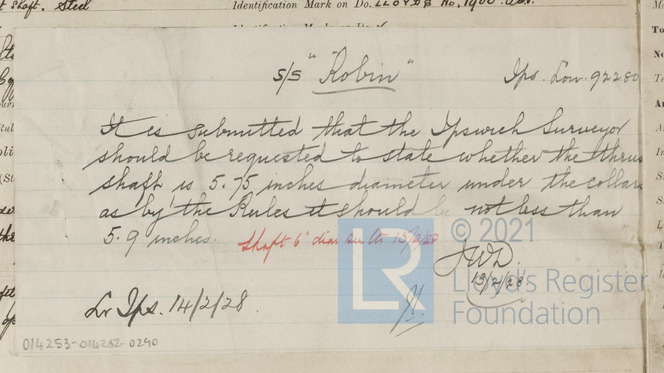 t Shaft. Steel
Identification Mark on Do. LLOYDS No. 1900.
s/s "Robin" Ips. Lon. 92280
It is submitted that the Ipswich Surveyor
should be requested to state whether the thrus
shaft is 5.75 inches diameter under the collars
as by the Rules it should be not less than
5.9 inches. Shaft 6" diar see ltr 15/2/28
JWD.
13/2/28
Lr Ips. 14/2/28.
014253-014282-0290
© 2021
LR
Lloyd's Register
Foundation